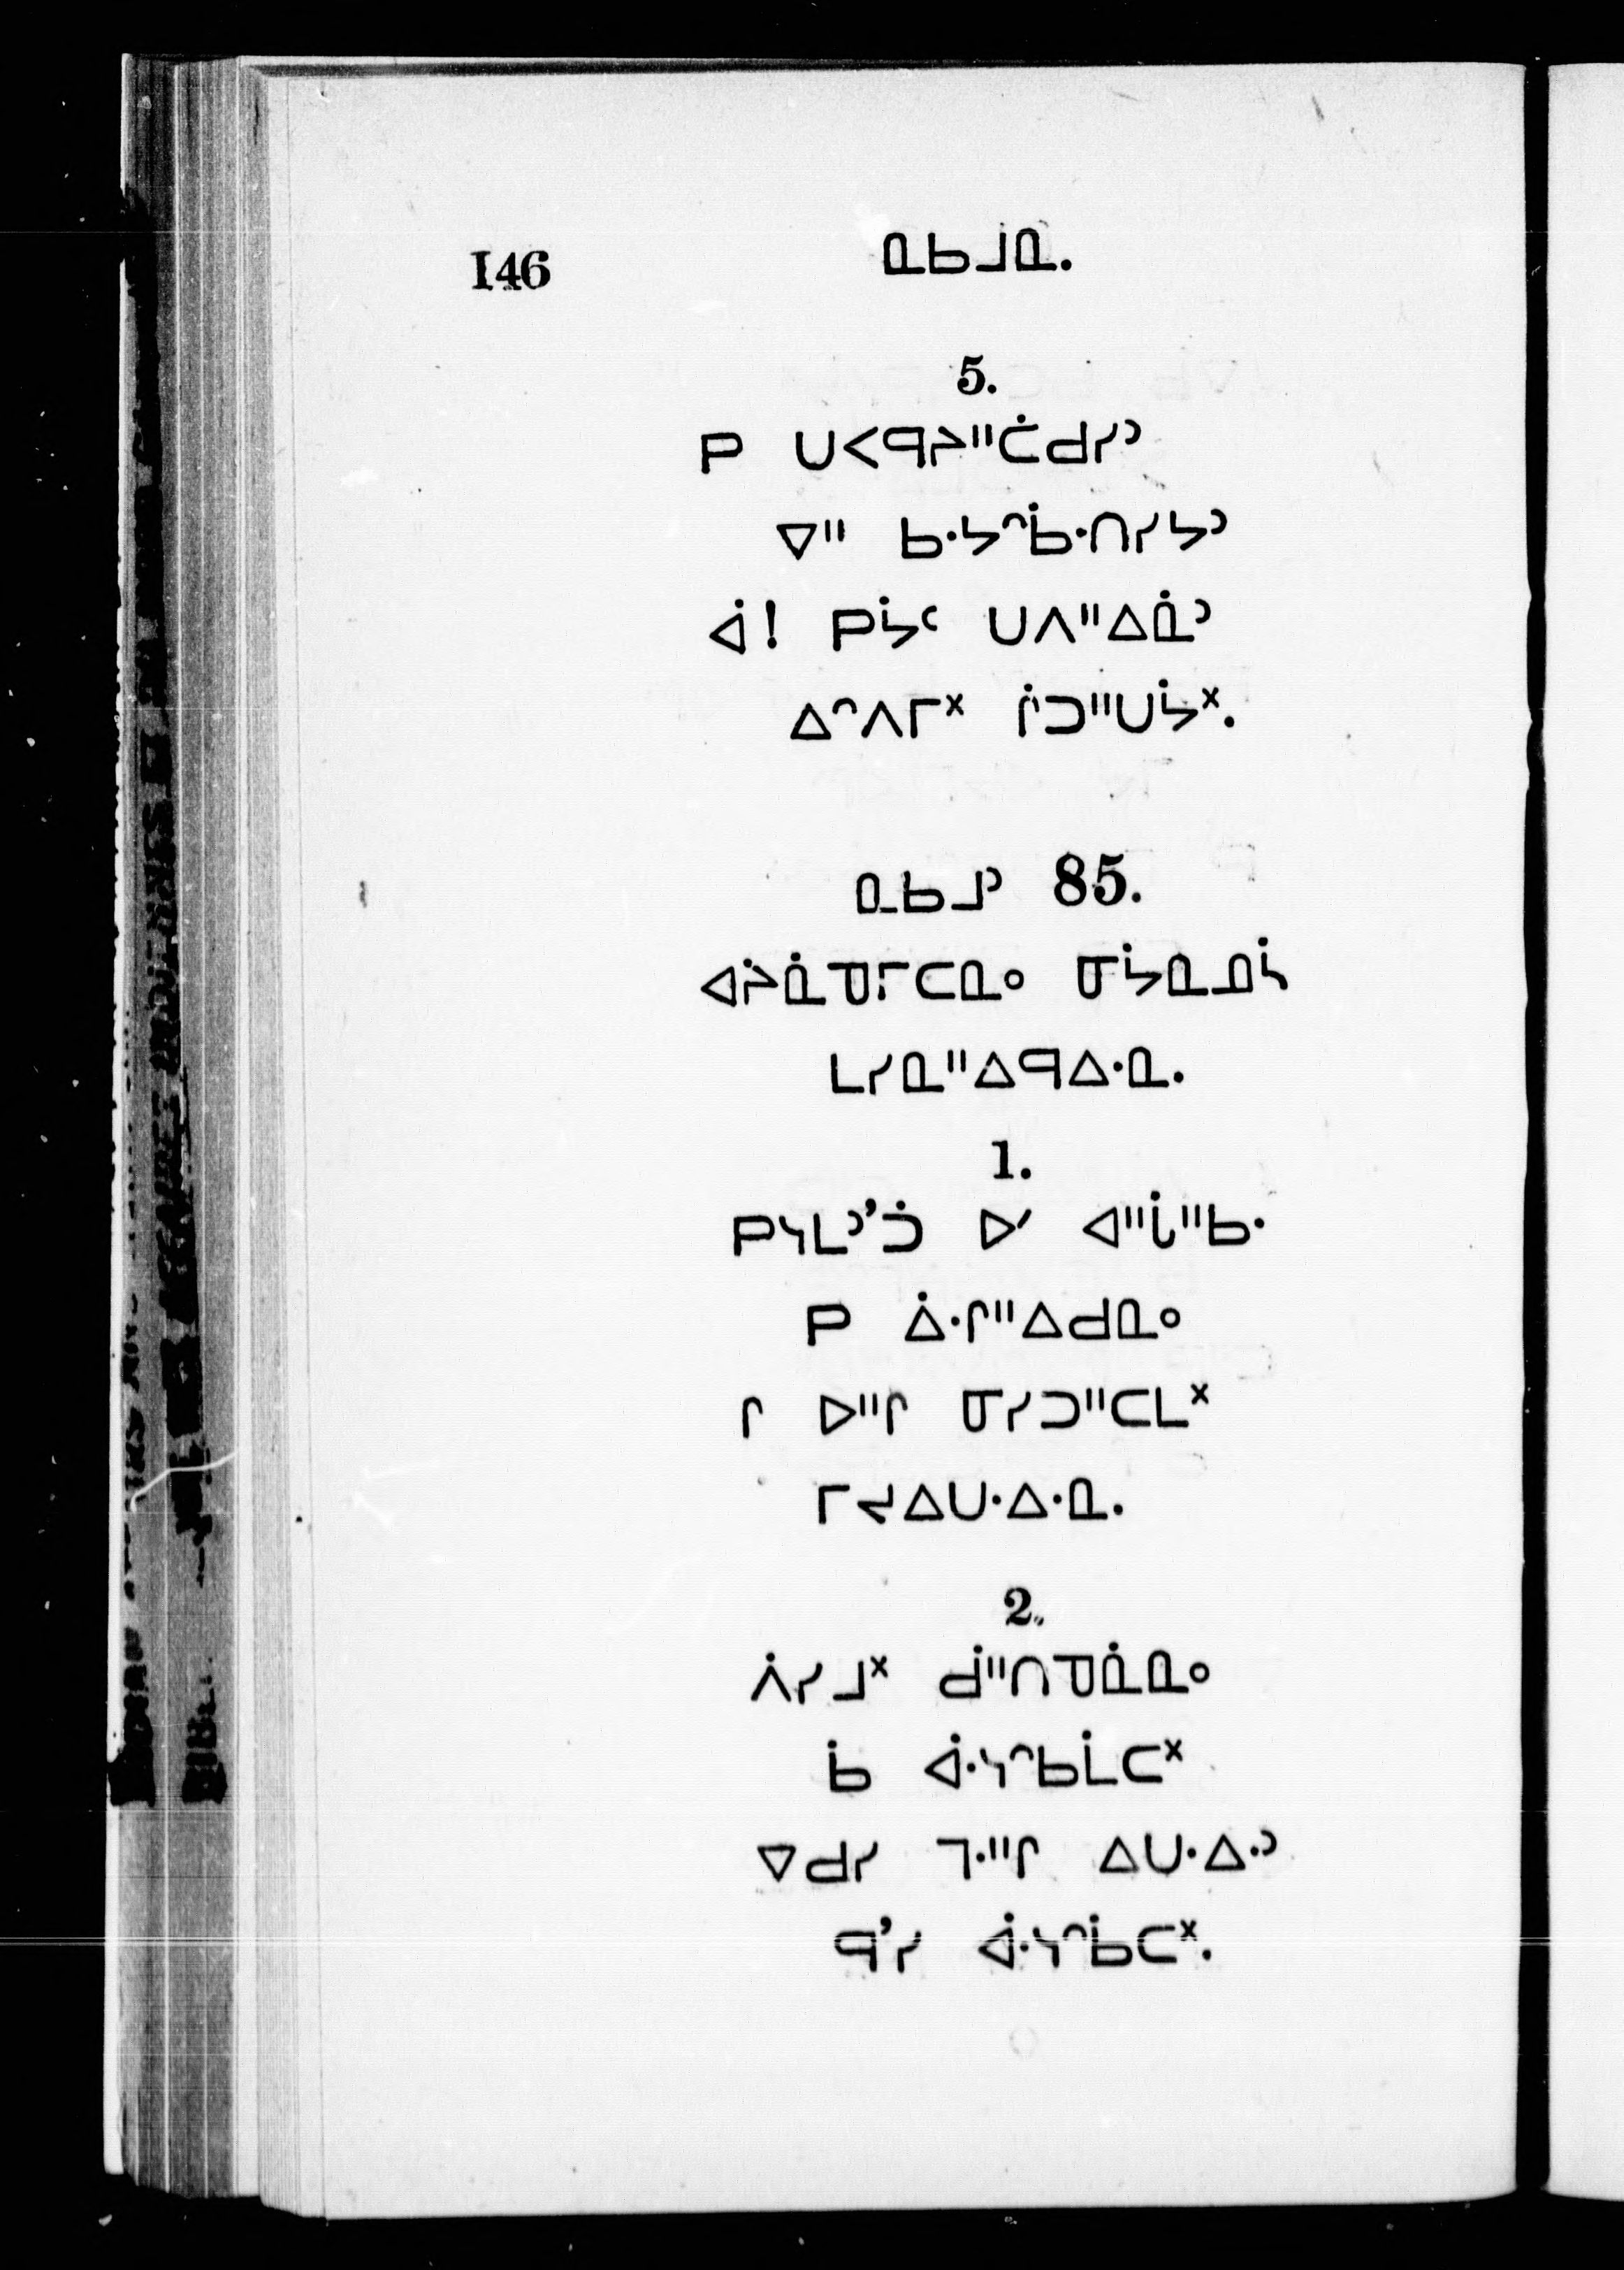 146
ᓇᑲᒧᓇ.
5.
ᑭ ᑌᐸᑫᔨᐦᑖᑯᓯᐣ
ᐁᐦ ᑲᐧᔭᐢᑳᐧᑎᓯᔭᐣ
ᐋ! ᑭᔮᐨ ᑌᐱᐦᐃᓈᐣ
ᐃᐢᐱᒥᕽ ᒌᑐᐦᑌᔮᕽ.
ᓇᑲᒧᐣ 85.
ᐊᔩᓈᓀᒥᑕᓇᐤ ᓂᔮᓇᓄᓵ
ᒪᓯᓇᐦᐃᑫᐃᐧᓇ.
1.
ᑭᓴᒪᐣ’ᑑ ᐅᐟ ᐊᐦᒑᐦᑲᐧ
ᑭ ᐄᐧᒋᐦᐃᑯᓇᐤ
ᒋ ᐅᐦᒋ ᓂᓯᑐᐦᑕᒪᕽ
ᒥᔪᐃᑌᐧᐃᐧᓇ.
2.
ᐲᓯᒧᕽ ᑰᐦᑎᓀᓈᓇᐤ
ᑳ ᐋᐧᓭᐢᑲᒫᑕᕽ
ᐁᑯᓯ ᒣᐧᐦᒋ ᐃᑌᐧᐃᐧᐣ
ᑫ’ᓯ ᐋᐧᓭᐢᑳᑕᕽ.